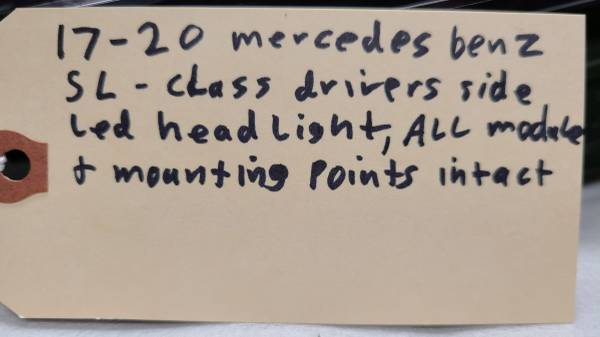 17-20 mercedes benz
SL-class drivers side
Led headLight, ALL module
+ mounting points intact